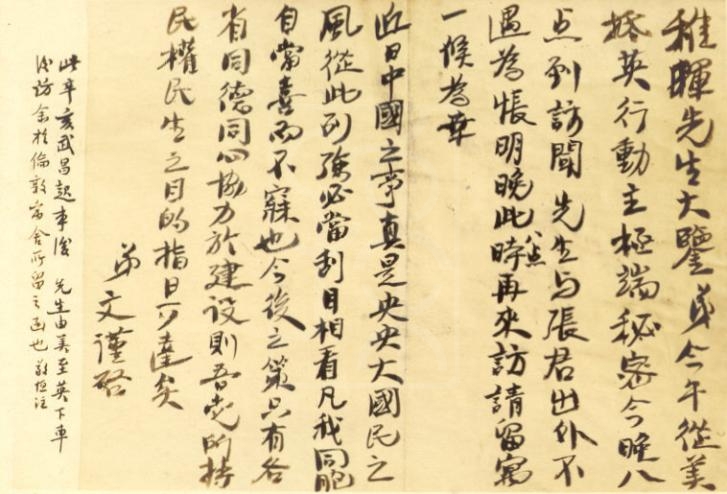 稚暉先生大鑒弟今午從美
抵英行動主極端秘密今晚八
点到訪聞先生与張君出外不
遇為悵明晚此時八点再來訪請留寓
一候為幸
近日中國之事真是央央大國民之
風從此列強必當刮目相看凡我同胞
自當喜而不寐也今後之策只有各
省同德同心協力於建设則吾党的持
民權民生之目的指日可達矣
弟文謹啓
此辛亥武昌起事後 先生由美至英下車
後訪余於倫敦寓舍所留之函也敬恒注